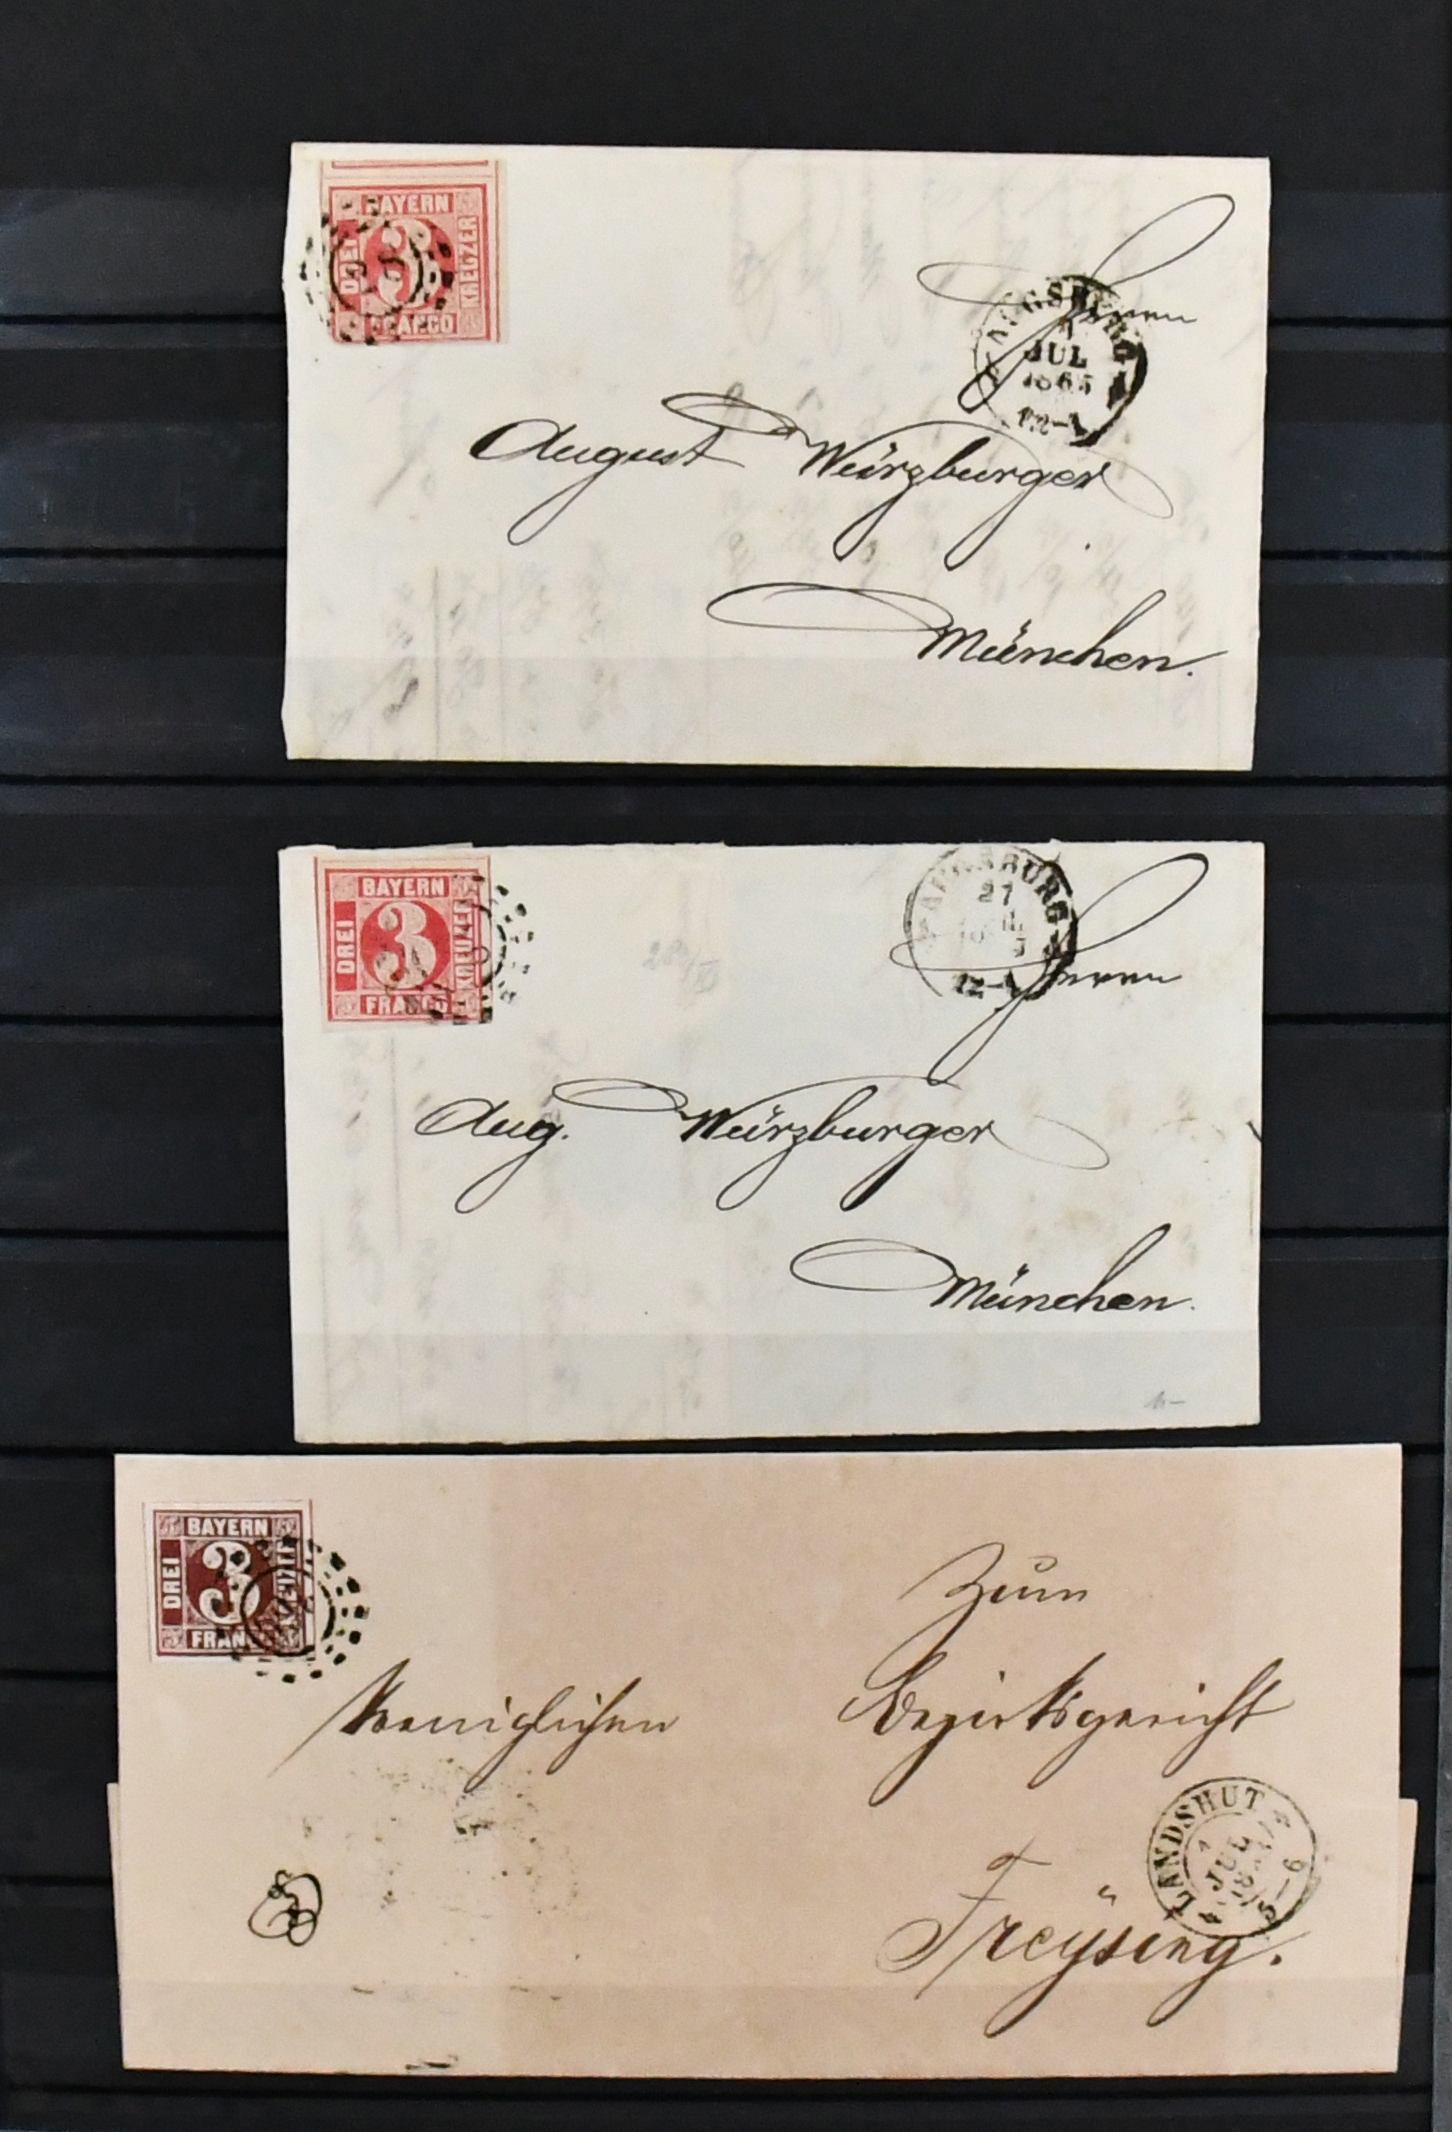 BAYERN
DREI
3
KREUZER
FRANCO
AUGSBURG
JUL
1865
12-1
Herrn
August Würzburger
München.
BAYERN
DREI
3
KREUZER
FRANCO
AUGSBURG
21
12-1
Herrn
Aug. Würzburger
München.
BAYERN
DREI
3
KREUZER
FRANCO
Zum
Koeniglichen Bezirksgericht
LANDSHUT
JUL
5-6
Freÿsing.